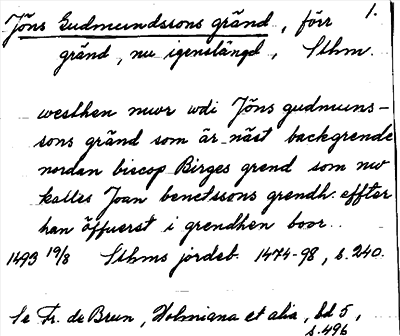 Jöns Gudmundssons gränd, förr 1.
gränd, nu igenstängd, Sthm.
westhen mwr wdi Jöns gudmuns-
sons gränd som är näst backgrende
nordan biscop Birges grend som nw
kalles Joan benctssons grendh. effter
han öffuerst i grendhen boor..
1493 19/8 Sthms jordeb. 1474-98, s. 240.
Se Fr. de Brun, Holmiana et alia, bd 5,
s. 496